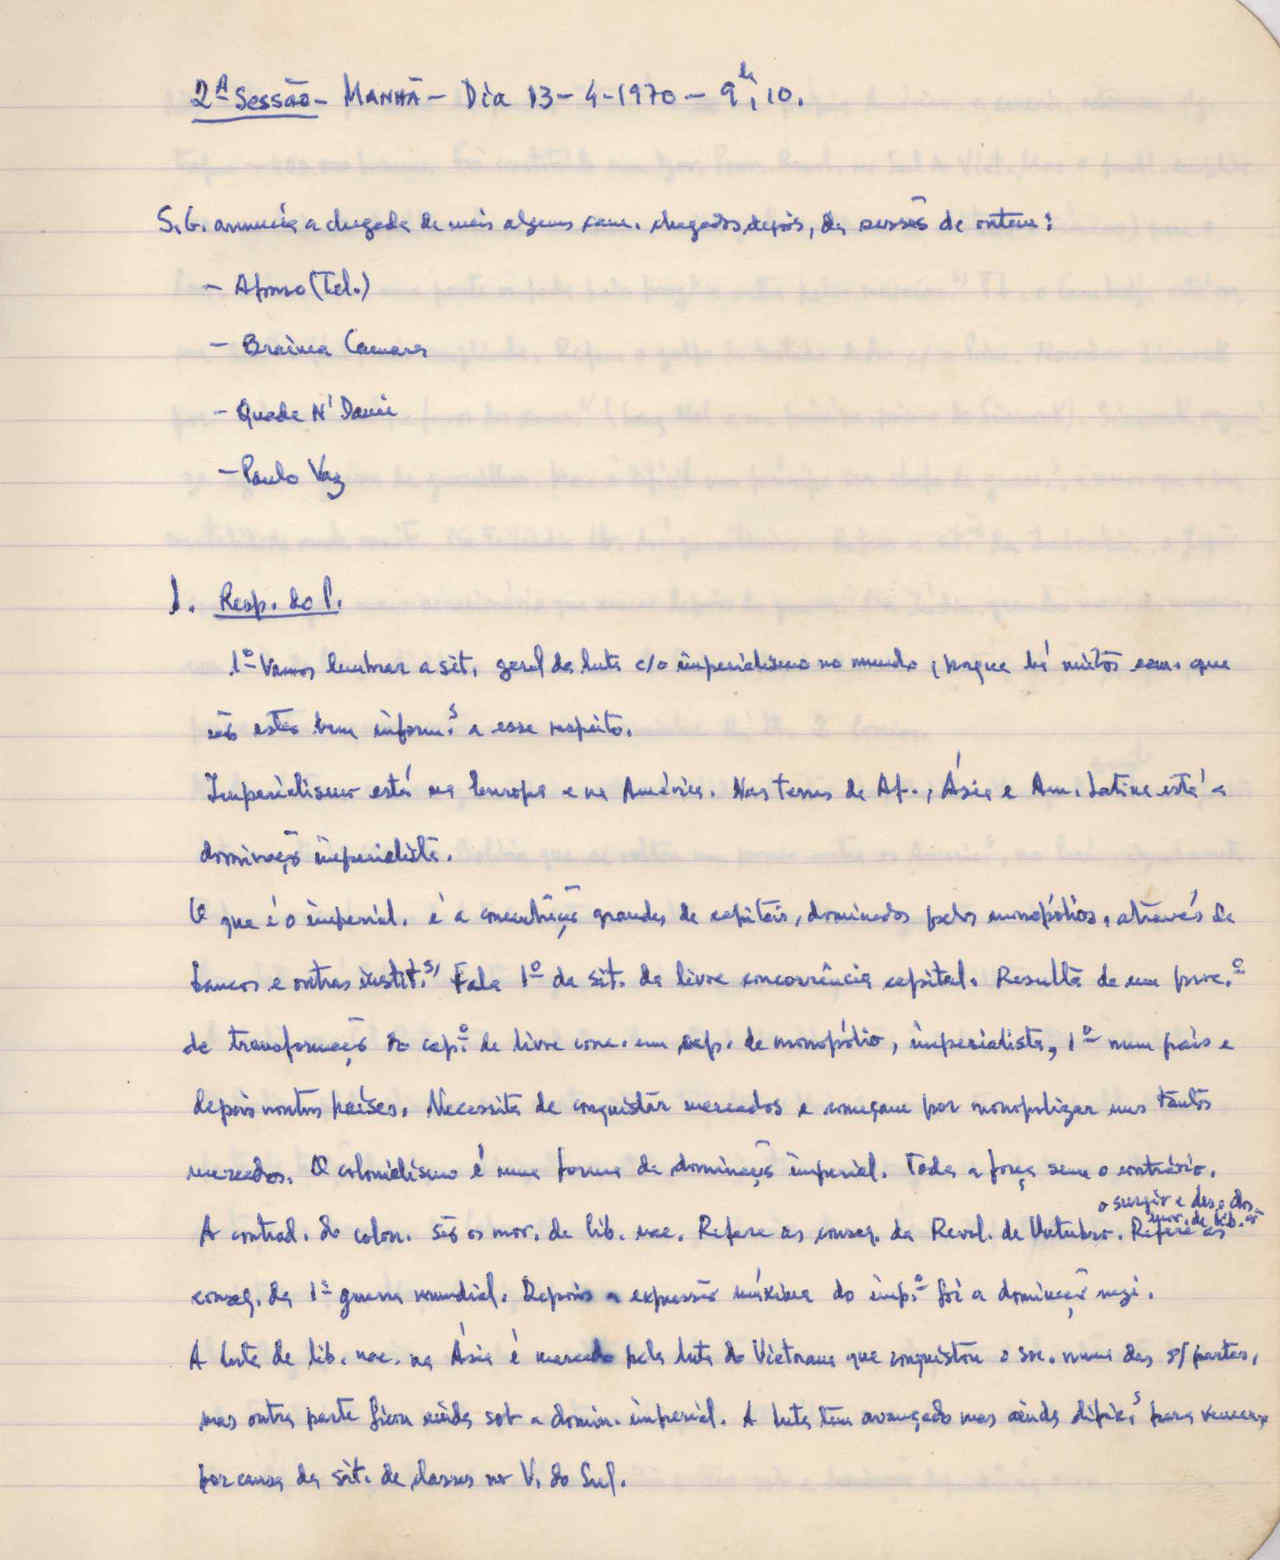 2ª Sessão - MANHÃ - Dia 13-4-1970 - 9h,10.
S.G. anuncia a chegada de mais alguns cam. chegados depois, da sessão de ontem:
- Afonso (Tel.)
- Braima Camara
- Quade N'Damie
- Paulo Vaz
1. Resp. do P.
1º Vamos lembrar a sit. geral da luta c/o imperialismo no mundo, porque há muitos cam. que
não estão bem inform.s a esse respeito.
Imperialismo está na Europa e na América. Nas terras de Af., Ásia e Am. Latina está a
dominação imperialista.
O que é o imperial. é a concentração grandes de capitais, dominados pelos monopólios, através de
bancos e outras instit.s, Fala 1º da sit. da livre concorrência capital. Resulta de um proc.º
de transformação do cap.º de livre conc. em cap. de monopólio, imperialista, 1º num país e
depois noutros países. Necessita de conquistar mercados e começam por monopolizar uns tantos
mercados. O colonialismo é uma forma da dominação imperial. Toda a força sem o contrário.
o surgir e des.º dos
mov. de lib. nº
A contrad. do colon. são os mov. de lib. nac. Refere as conseq. da Revol. de Outubro. Refere as
conseq. da 1ª guerra mundial. Depois a expressão máxima do imp.º foi a dominação nazi.
A luta de lib. nac. na Ásia é marcado pela luta do Vietname que conquistou o soc. numa das s/ partes,
mas outra parte ficou ainda sob a domin. imperial. A luta tem avançado mas ainda dific.s para vencer,
por causa da sit. de classes no V. do Sul.